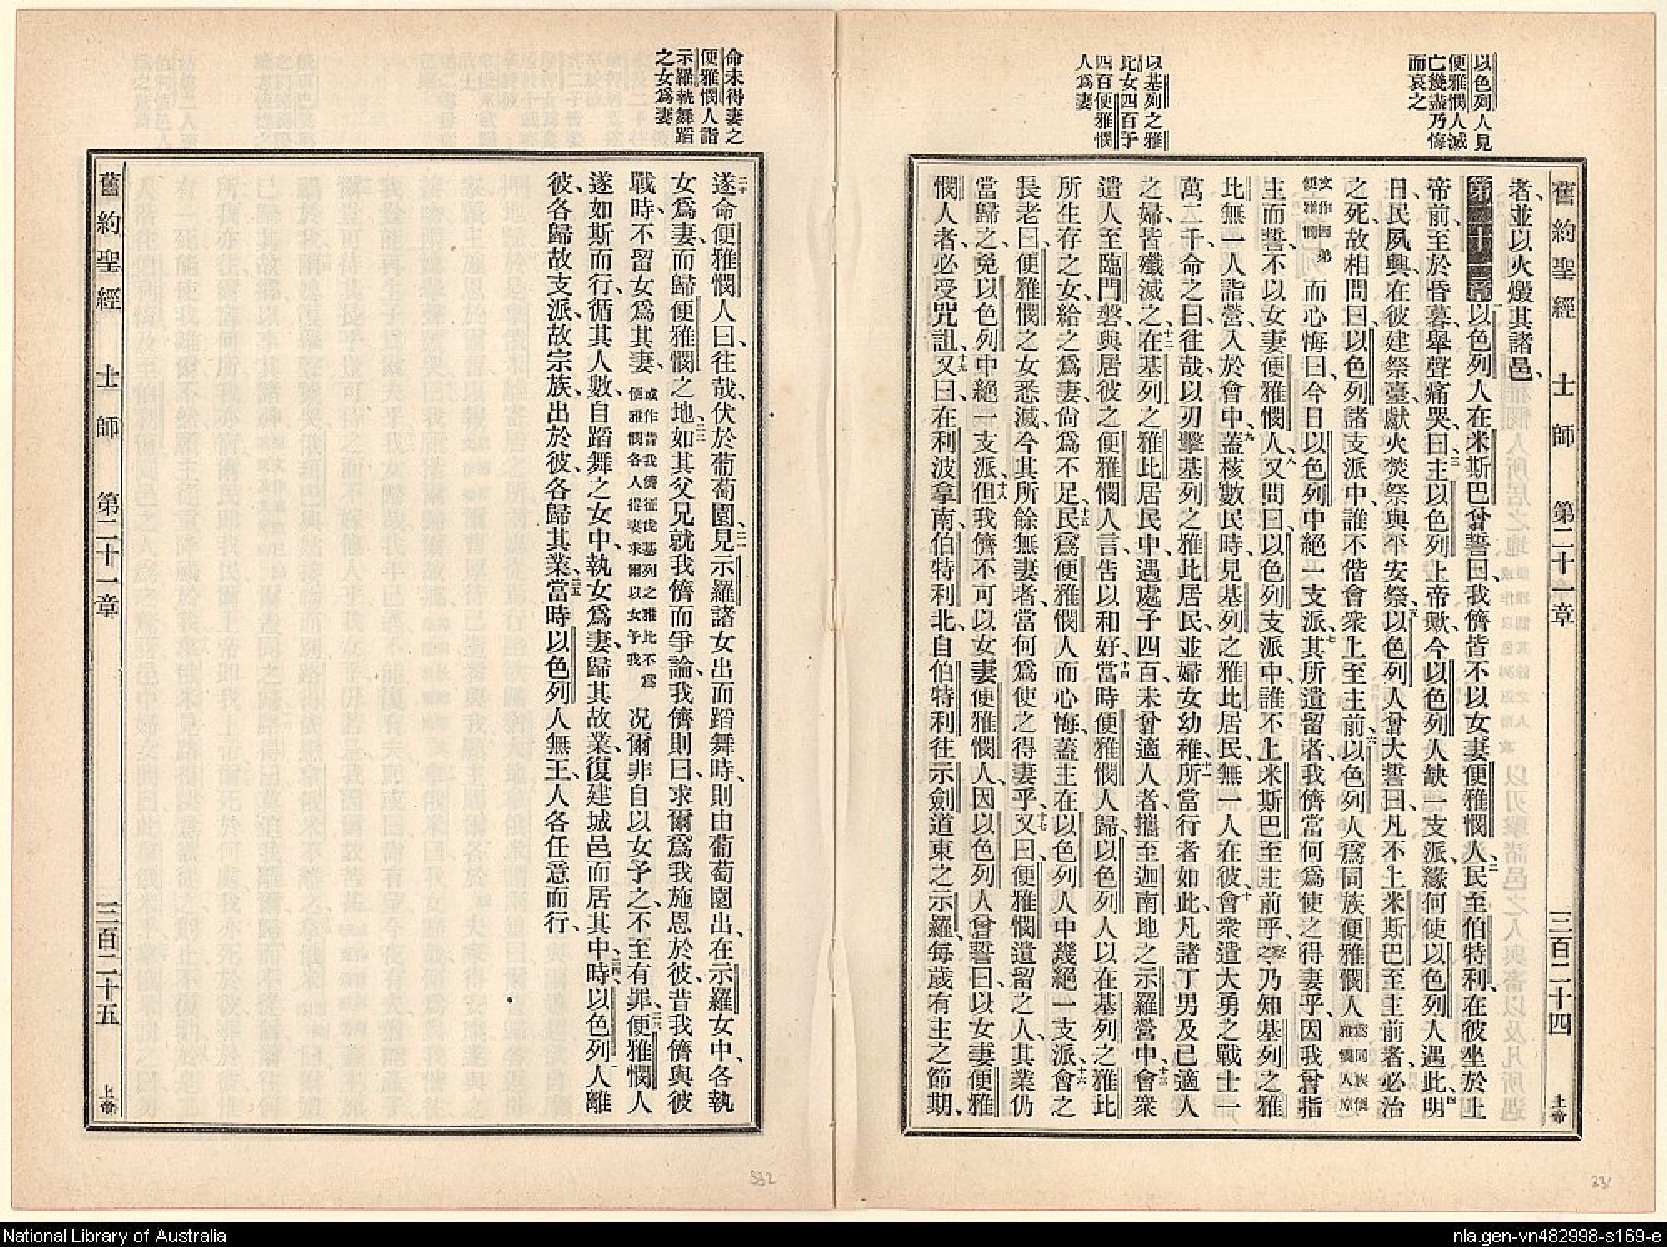 以色列人見
便雅憫人滅
亡幾盡乃悔
而哀之
以基列之雅
比女四百予
四百便雅憫
人爲妻
舊約聖經 士師 第二十一章 三百二十四 上帝
者、並以火燬其諸邑、
第二十一章以色列人在米斯巴曾誓曰、我儕皆不以女妻便雅憫人、二民至伯特利、在彼坐於上
帝前、至於昏暮、舉聲痛哭、三曰、主以色列上帝歟、今以色列人缺一支派、緣何使以色列人遇此、四明
日、民夙興、在彼建祭臺、獻火焚祭與平安祭、五以色列人曾大誓曰、凡不上米斯巴至主前者、必治
之死、故相問曰、以色列諸支派中、誰不偕會衆上至主前、六以色列人爲同族便雅憫人
而心悔曰、今日以色列中絕一支派、七其所遺留者、我儕當何爲使之得妻乎、因我曾指
主而誓、不以女妻便雅憫人、八又問曰、以色列支派中、誰不上米斯巴至主前乎、乃知基列之雅
比、無一人詣營、入於會中、九蓋核數民時、見基列之雅比居民、無一人在彼、十會衆遣大勇之戰士一
萬二千、命之曰、往哉、以刃擊基列之雅比居民、並婦女幼稚、十一所當行者如此、凡諸丁男、及已適人
之婦、皆殲滅之、十二在基列之雅比居民中、遇處子四百、未曾適人者、攜至迦南地之示羅營中、十三會衆
遣人至臨門磐、與居彼之便雅憫人言、告以和好、十四當時便雅憫人歸、以色列人以在基列之雅比
所生存之女、給之爲妻、尙爲不足、十五民爲便雅憫人而心悔、蓋主在以色列人中幾絕一支派、十六會之
長老曰、便雅憫之女悉滅、今其所餘無妻者、當何爲使之得妻乎、十七又曰、便雅憫遺留之人、其業仍
當歸之、免以色列中絕一支派、十八但我儕不可以女妻便雅憫人、因以色列人曾誓曰、以女妻便雅
憫人者、必受咒詛、十九又曰、在利波拿南、伯特利北、自伯特利往示劍道東之示羅、每歲有主之節期、
331
命未得妻之
便雅憫人詣
示羅執舞蹈
之女爲妻
二十遂命便雅憫人曰、往哉、伏於葡萄園、二一見示羅諸女出而蹈舞時、則由葡萄園出、在示羅女中、各執
女爲妻、而歸便雅憫之地、二二如其父兄就我儕而爭論、我儕則曰、求爾爲我施恩於彼、昔我儕與彼
戰時、不留女爲其妻、或作昔我儕征伐基列之雅比不爲便雅憫各人得妻求爾以女予我况爾非自以女予之、不至有罪、二三便雅憫人
遂如斯而行、循其人數、自蹈舞之女中、執女爲妻、歸其故業、復建城邑而居其中、二四時、以色列人離
彼、各歸故支派、故宗族、出於彼、各歸其業、二五當時以色列人無王、人各任意而行、
舊約聖經 士師 第二十一章 三百二十五 上帝
332
National Library of Australia
nla.gen-vn482998-s169-e